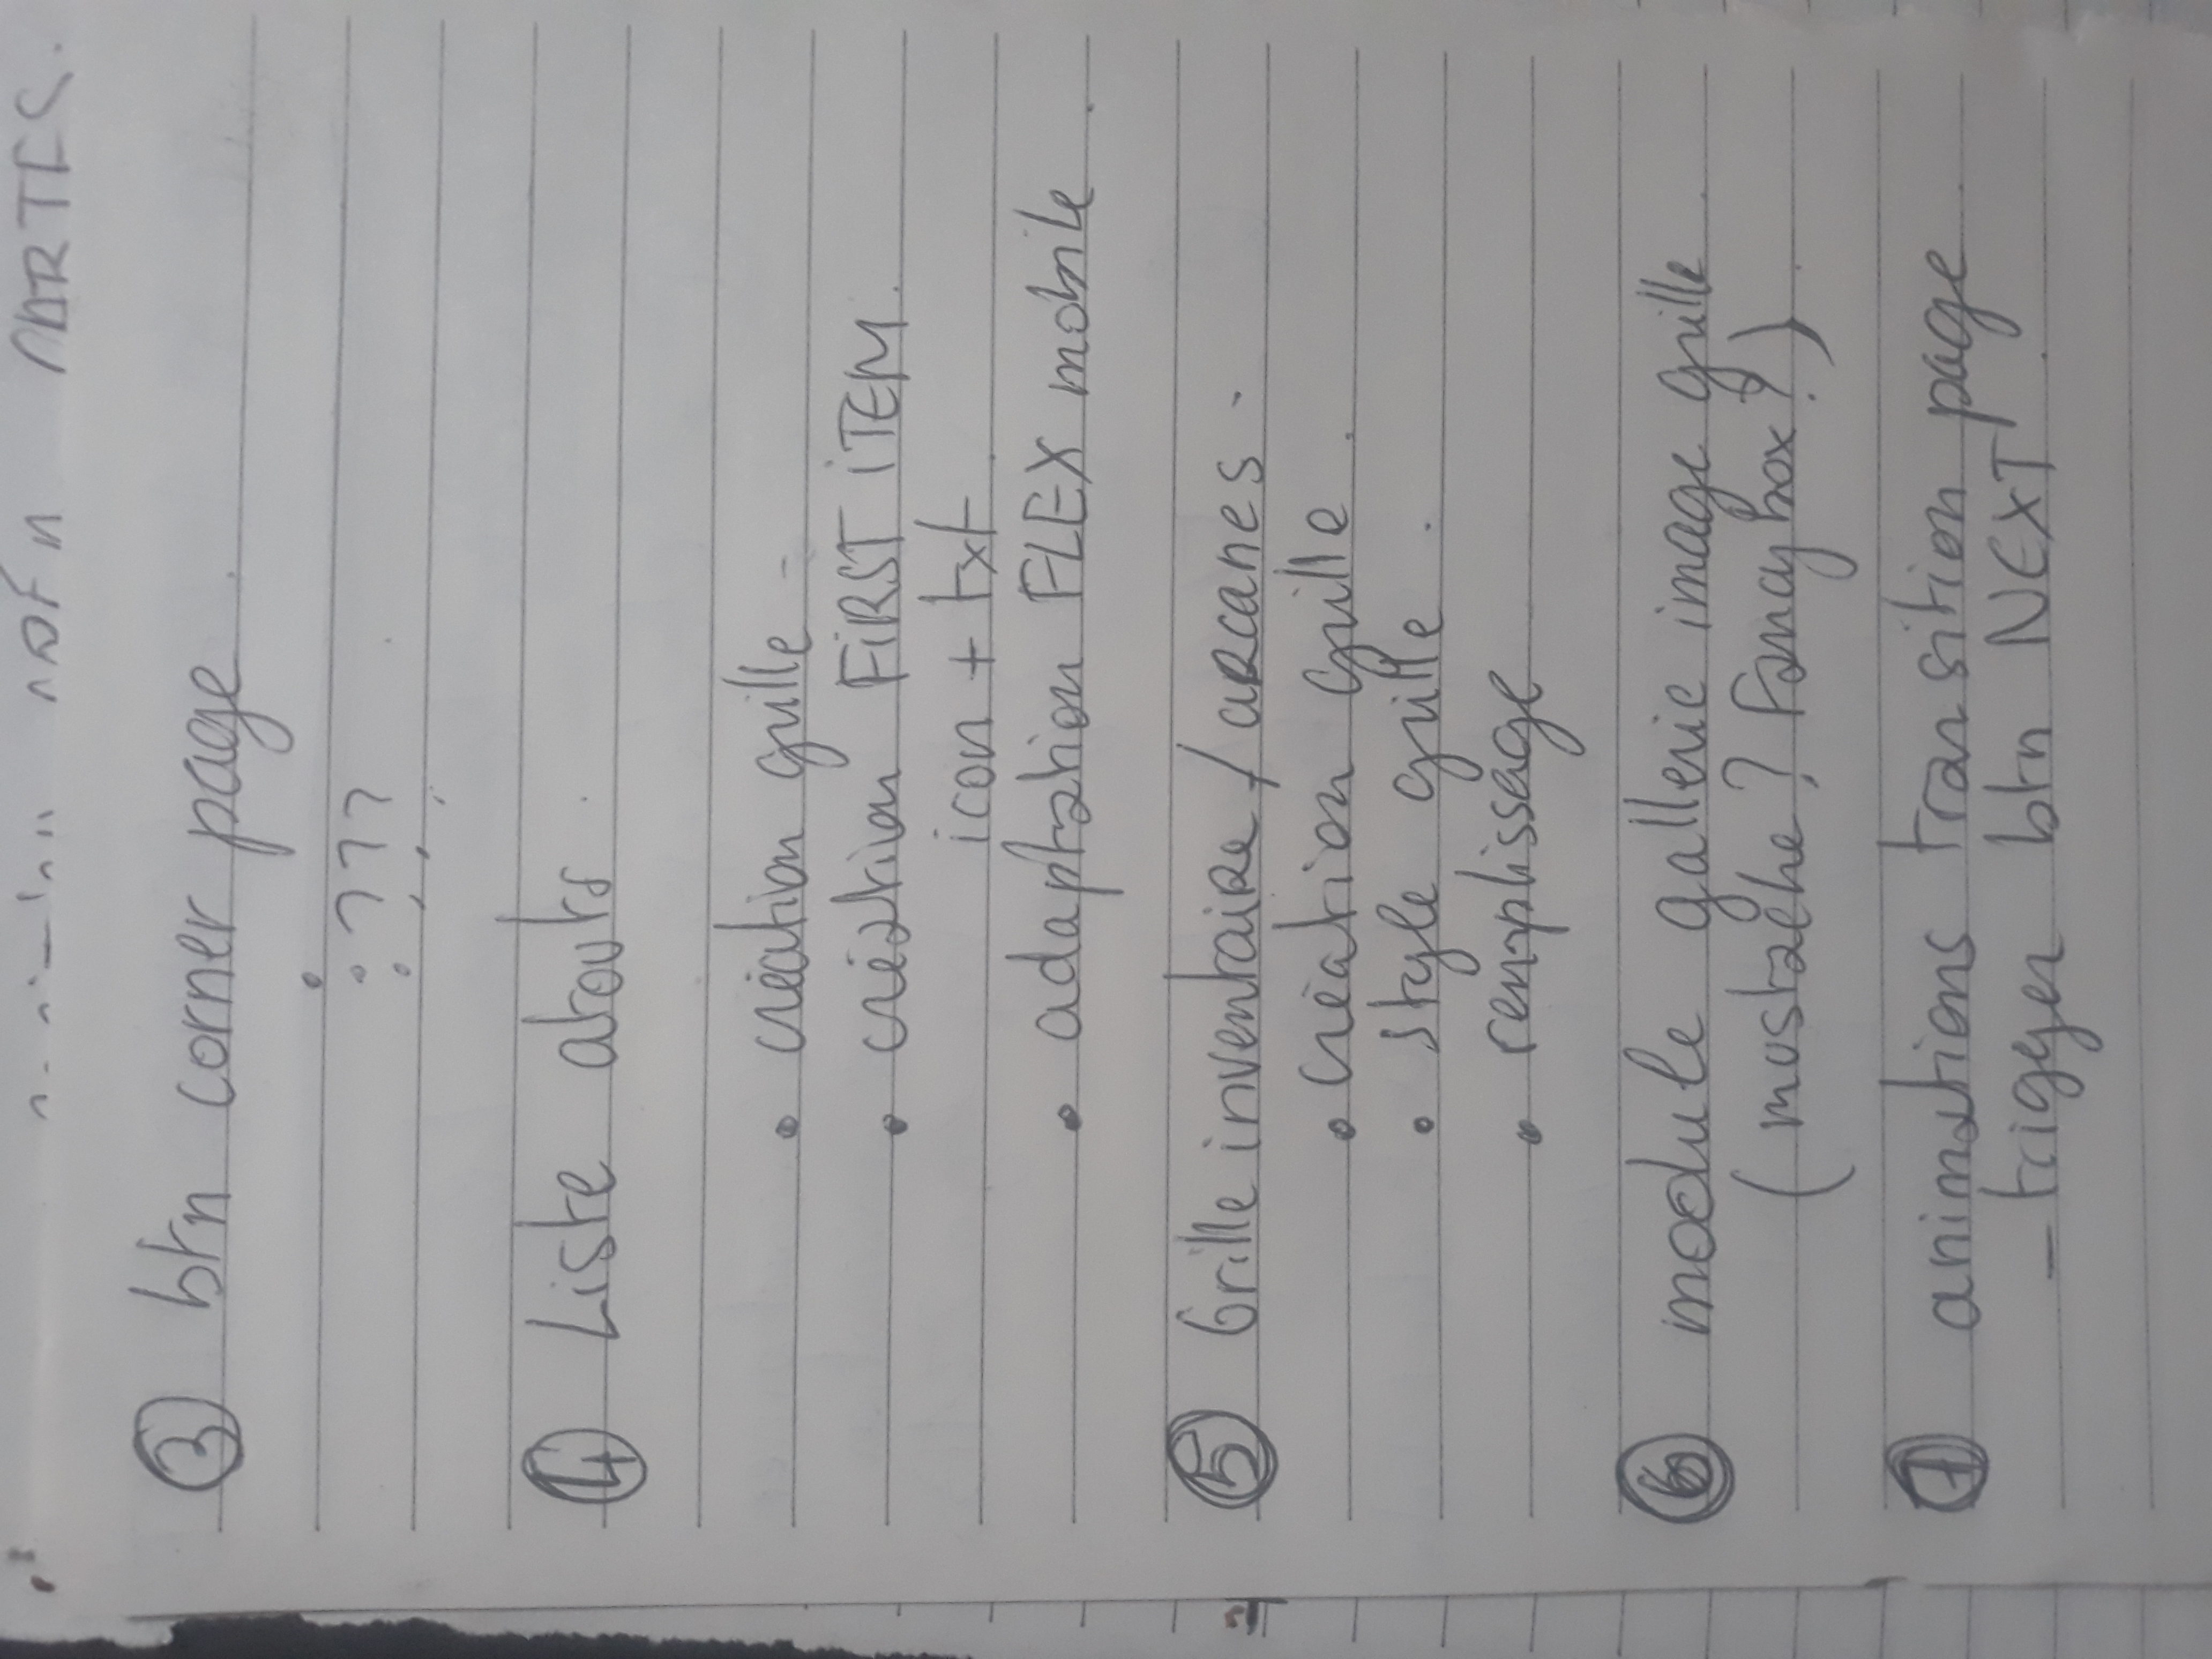 CARTES.
③ btn corner page.
: ???
④ Liste atouts.
• création grille -
• création FiRST iTEM.
icon + txt.
• adaptation FLEX mobile.
⑤ Grille inventaire / arcanes.
• création grille.
• style grille.
• remplissage
⑥ module gallerie image grille.
(mustache ? Fancybox ?).
⑦ animations transition page.
- trigger btn NEXT.